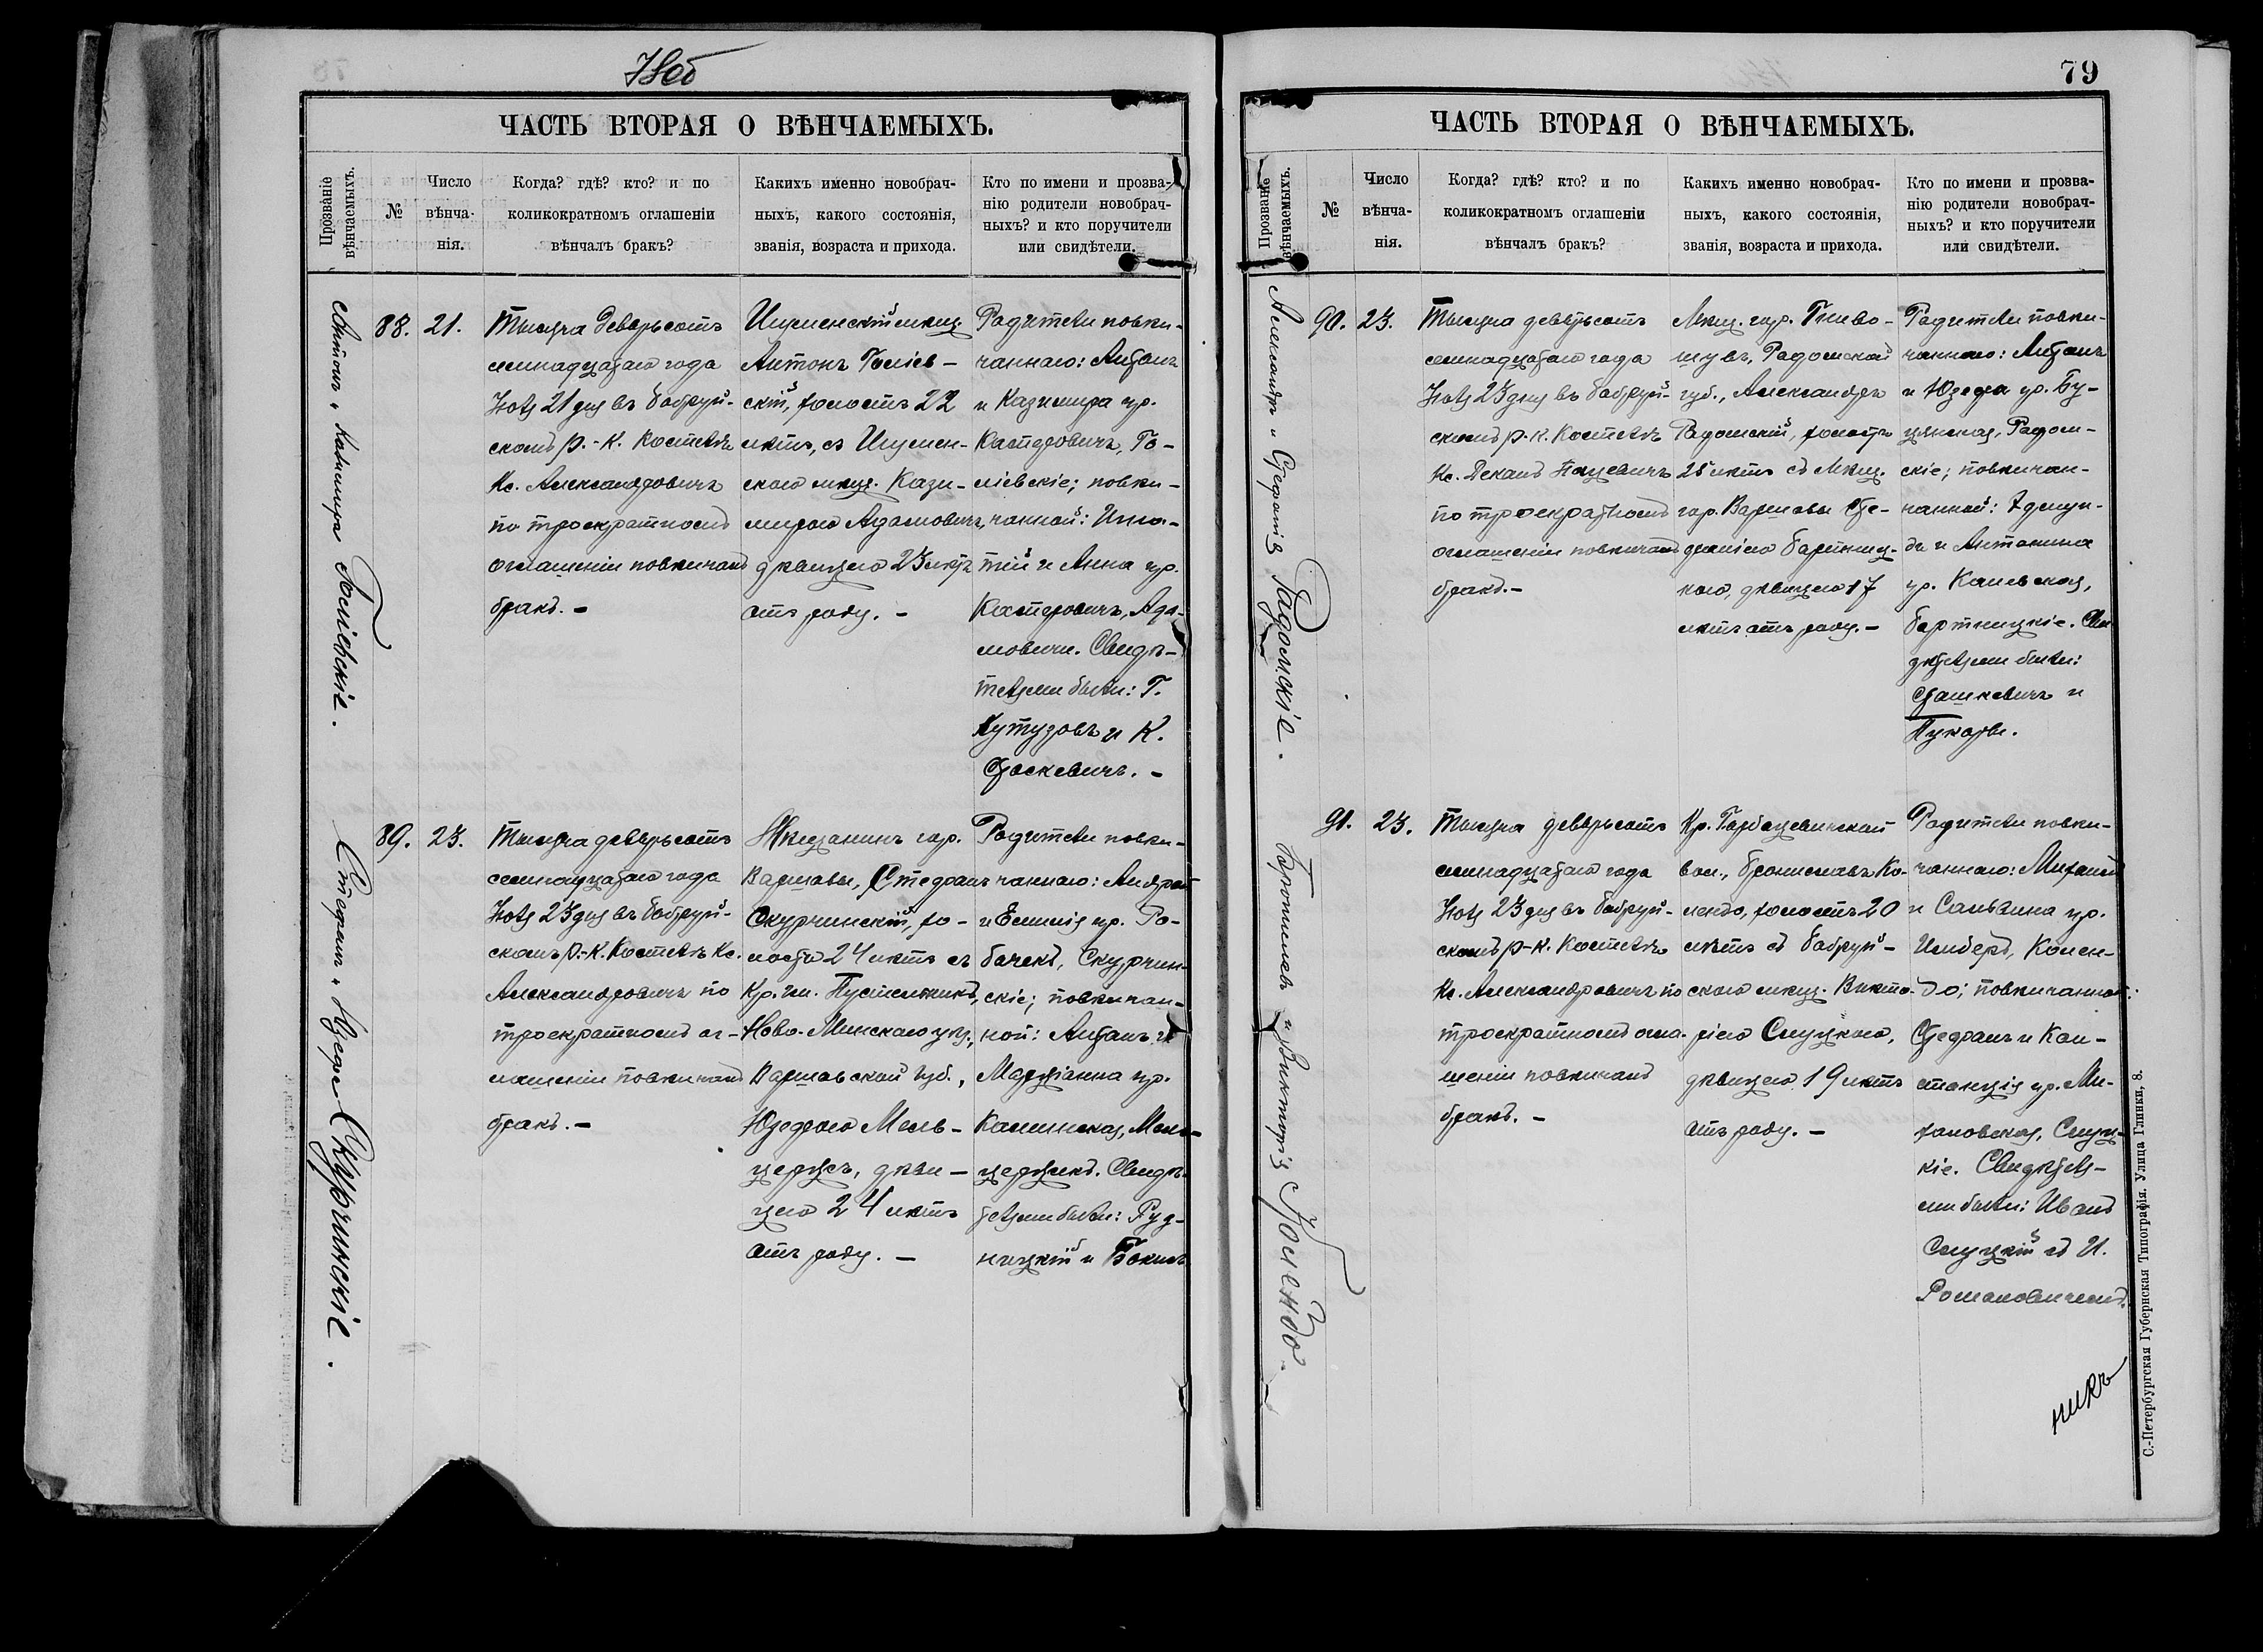 78об
ЧАСТЬ ВТОРАЯ О ВѢНЧАЕМЫХЪ.
Прозваніе
вѣнчаемыхъ.
№
Число
вѣнча-
нія.
Когда? гдѣ? кто? и по
коликократномъ оглашеніи
вѣнчалъ бракъ?
Какихъ именно новобрач-
ныхъ, какого состоянія,
званія, возраста и прихода.
Кто по имени и прозва-
нію родители новобрач-
ныхъ? и кто поручители
или свидѣтели.
Антонъ и Казимира Голіевскіе.
88.
21.
Тысяча девятьсотъ
семнадцатаго года
Ноя 21 дня въ Бобруй-
скомъ р.-к. Костелѣ
Кс. Александровичъ
по троекратномъ
оглашеніи повѣнчалъ
бракъ.-
Игуменскій мѣщ.
Антонъ Голіев-
скій, холостъ 22
лѣтъ, съ Игумен-
скою мѣщ. Кази-
мирою Адамовичъ,
дѣвицею 23 лѣтъ
отъ роду.-
Родители повѣн-
чаннаго: Антонъ
и Казимира ур.
Касперовичъ, Го-
ліевскіе; повѣн-
чанной: Игна-
тій и Анна ур.
Касперовичъ, Ада-
мовичи. Свидѣ-
телями были: Г.
Кутузовъ и К.
Стаскевичъ.-
Стефанъ и Юзефа Скурчинскіе.
89.
23.
Тысяча девятьсотъ
семнадцатаго года
Ноя 23 дня въ Бобруй-
скомъ р.-к. Костелѣ Кс.
Александровичъ по
троекратномъ ог-
лашеніи повѣнчалъ
бракъ.-
Мѣщанинъ гор.
Варшавы, Стефанъ
Скурчинскій, хо-
лостъ 24 лѣтъ съ
Кр. гм. Пустельникъ,
Ново-Минскаго уѣз.,
Варшавской губ.,
Юзефою Мель-
цержъ, дѣви-
цею 24 лѣтъ
отъ роду.-
Родители повѣн-
чаннаго: Андрей
и Емилія ур. Ро-
бачекъ, Скурчин-
скіе; повѣнчан-
ной: Антонъ и
Маріанна ур.
Калинская, Мель-
цержикъ. Свидѣ-
телями были: Руд-
ницкій и Бокшъ
79
ЧАСТЬ ВТОРАЯ О ВѢНЧАЕМЫХЪ.
Прозваніе
вѣнчаемыхъ.
№
Число
вѣнча-
нія.
Когда? гдѣ? кто? и по
коликократномъ оглашеніи
вѣнчалъ бракъ?
Какихъ именно новобрач-
ныхъ, какого состоянія,
званія, возраста и прихода.
Кто по имени и прозва-
нію родители новобрач-
ныхъ? и кто поручители
или свидѣтели.
Александръ и Стефанія Радомскіе.
90.
23.
Тысяча девятьсотъ
семнадцатаго года
Ноя 23 дня въ Бобруй-
скомъ р.-к. Костелѣ
Кс. Деканъ Пацевичъ
по троекратномъ
оглашеніи повѣнчалъ
бракъ.-
Мѣщ. гор. Гнево-
шувъ, Радомской
губ., Александръ
Радомскій, холостъ
25 лѣтъ съ мѣщ.
гор. Варшавы Сте-
фаніею Бартниц-
кою, дѣвицею 17
лѣтъ отъ роду.-
Родители повѣн-
чаннаго: Антонъ
и Юзефа ур. Бу-
цянская, Радом-
скіе; повѣнчан-
чанной: Эдмун-
дъ и Антонина
ур. Каневская,
Бартницкіе. Сви
дѣтелями были:
Сташкевичъ и
Брониславъ и Викторія Колендо.
91.
23.
Тысяча девятьсотъ
семнадцатаго года
Ноя 23 дня въ Бобруй-
скомъ р-к. Костелѣ
Кс. Александровичъ по
троекратномъ огла-
шеніи повѣнчалъ
бракъ.-
Кр. Горбацевичской
вол., Брониславъ Ко-
лендо, холостъ 20
лѣтъ съ Бобруй-
скою мѣщ. Викто-
ріею Слуцкою,
дѣвицею 19 лѣтъ
отъ роду.-
Родители повѣн-
чаннаго: Михаилъ
и Сальвина ур.
Имберъ, Колен-
до; повѣнчанной:
Стефанъ и Кон-
станція ур. Ми-
халовская, Слуц-
кіе. Свидѣтеля-
ми были: Иванъ
Слуцкій съ И.
Романовичемъ.
никъ
С.-Петербургская Губернская Типографія. Улица Глинки, 8.